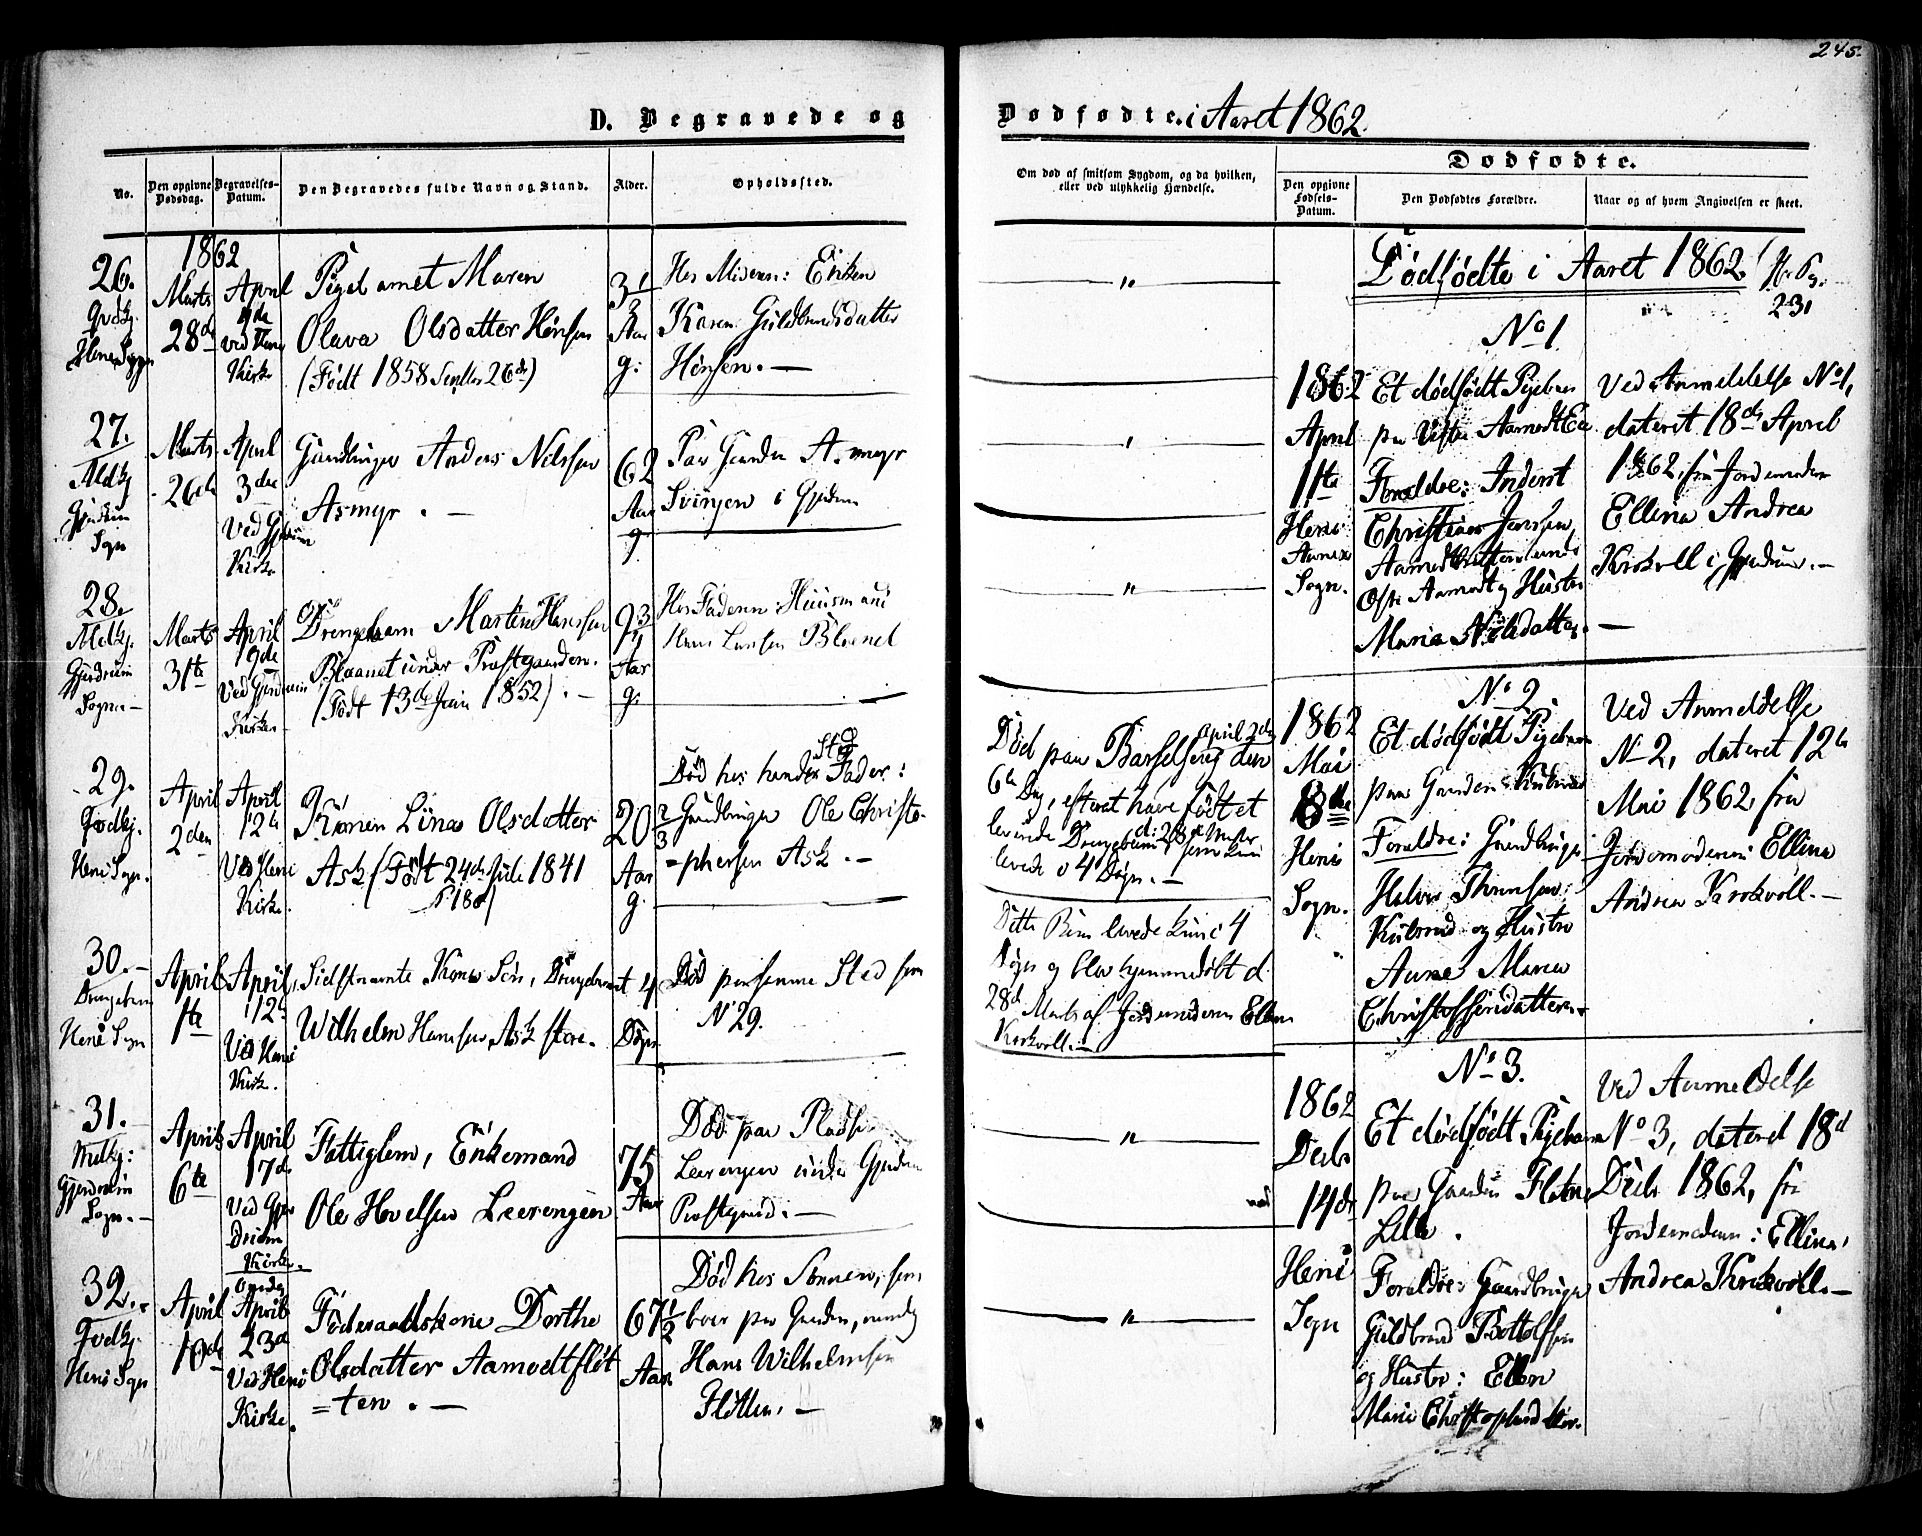 245.
D. Begravede og
Dødfødte. i Aaret 1862.
No.
Den opgivne Dødsdag.
Begravelses-Datum.
Den Begravedes fulde Navn og Stand.
Alder.
Opholdssted.
Om død af smitsom Sygdom, og da hvilken,
eller ved ulykkelig Hændelse.
Dødfødte.
Den opgivne Fødsels-Datum.
Den Dødfødtes Forældre.
Naar og af hvem Angivelsen er skeet.
1862
26.
Marts
28de
April
ved
Kirke
Pigebarnet Maren
Olava Olsdatter Hønsen
(Født 1858 Septbr 26de)
3 1/2
Aar
g:
Hos Moderen: Enken
Karen Guldbrandsdatter
Hønsen. —
27.
Gjerdrum
Sogn
Marts
26de
April
3die
Ved Gjerdrum
Kirke
Gaardbruger Anders Nilssen
Asmyr. —
62
Aar
g.
Paa Gaarden Asmyr
i Gjerdrum
28.
Gjerdrum
Sogn. —
Marts
31te
April
9de
Ved Gjerdrum
Kirke
Drengebarn Martin Hanssen
Blaanet under Præstgaarden.
(Født 13de Juni 1852). —
9 3/4
Aar
g.
Hos Faderen: Huusmand
Hans Larsen Blaanet
29.
Heni Sogn.
April
2den
April
12te
Ved Heni
Kirke.
Konen Lina Olsdatter
Ask (Født 24de Juli 1841
20 2/3
Aar
g.
Død hos hendes Fader:
Gaardbruger Ole Christo-
-phersen Ask. —
Død paa Barselseng den April 2de
6te Dag, efter at have født et
levende Drengebarn d: 28de Marts som kun
levede 4 Døgn. —
30. —
Drengebarn
Heni Sogn
April
1te
April
12te
Ved Heni
Kirk.
Sidstnævnte Kones Søn, Drengebarnet
Wilhelm Hansen Ask store.
4
Døgn
Død paa samme Sted som
N 29.
Dette Barn levede kun i 4
Døgn og blev hjemmedøbt d.
28de Marts af Jordemoderen Ellen
Krokvoll. —
31.
Gjerdrum
Sogn. —
April
6te
April
17de
Ved Gjer
drum
Kirke.
Fattiglem, Enkemand
Ole Hovelsen Leerengen
75
Aar
Død paa Pladsen
Leerengen under Gjerdrum
Præstegaard. —
32.
Heni Sogn
April
10de
Onsdag
April
23de
Ved Heni
Kirke.
Føderaadskone Dorthe
Olsdatter Aamodtfløt
=ten. —
67 1/2
Aar
Død hos Sønnen, som
boer paa Gaarden, nemlig
Hans Wilhelmsen
Fløtten. —
Dødfødte i Aaret 1862.
231
No 1.
1862
April
11te
Heni
Annex
Sogn.
Et dødfødt Pigebarn
paa Aamodt Eie
Forældre: Inderst
Christian Jensen
Østre Aamodt og Hustru
Maria Nilsdatter. —
Ved Anmeldelse No 1,
dateret 18de April
1862, fra Jordemoder
Ellina Andrea
Krokvoll i Gjerdrum. —
No 2.
1862
Mai
8de
Heni
Sogn.
Et dødfødt Pigebarn
paa Gaarden Kulsrud
Forældre: Gaardbruger
Kulsrud og Hustru
Anne Maria
Christoffersdatter. —
Ved Anmeldelse
N 2, dateret 12te
Mai 1862, fra
Jordemoderen: Ellina
Andrea Krokvoll. —
No 3.
1862
Decbr
14de
Heni
Sogn
Et dødfødt Pigebarn
paa Gaarden Fløtne
Lille.
Forældre: Gaardbruger
Guldbrand Bottolfsen
og Hustru: Ellen
Marie Christophersdatter.
Ved Anmeldelse
No 3, dateret 18de
Decbr 1862, fra
Jordemoderen: Ellina
Andrea Krokvoll. —